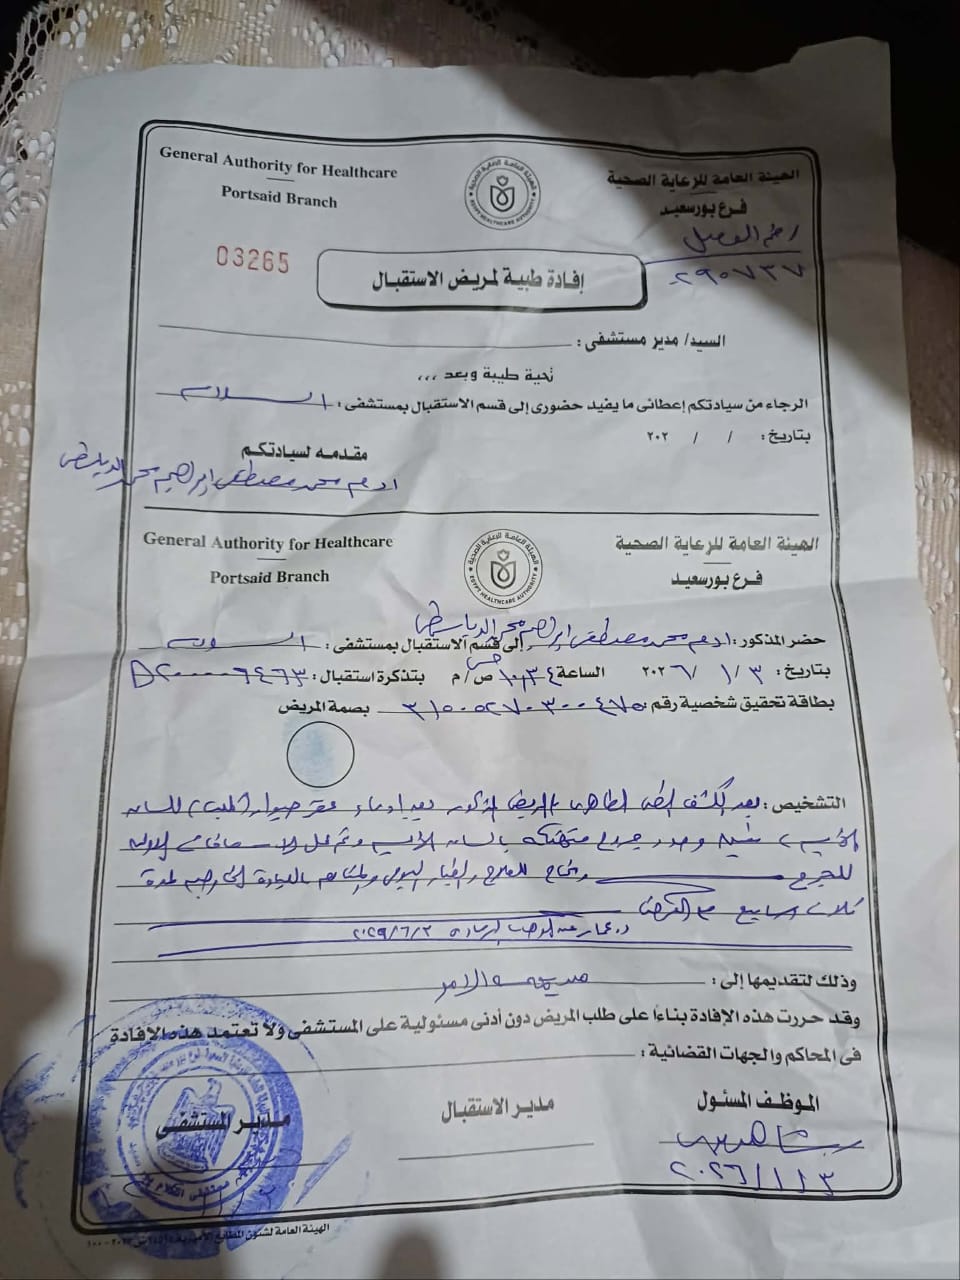 الهيئة العامة للرعاية الصحية
فرع بورسعيد
General Authority for Healthcare
Portsaid Branch
٢٩٠٧٣٧
03265
إفادة طبية لمريض الاستقبال
السيد/ مدير مستشفى :
تحية طيبة وبعد ,,,
الرجاء من سيادتكم إعطائى ما يفيد حضورى إلى قسم الاستقبال بمستشفى : السلام
بتاريخ : / / ٢٠٢
مقدمه لسيادتكم
ادهم محمد مصطفى ابراهيم محمد الدياسطى
الهيئة العامة للرعاية الصحية
فرع بورسعيد
General Authority for Healthcare
Portsaid Branch
حضر المذكور : ادهم محمد مصطفى ابراهيم محمد الدياسطى إلى قسم الاستقبال بمستشفى : السلام
بتاريخ : ٣ / ١ / ٢٠٢٦ الساعة ص / م بتذكرة استقبال :
بطاقة تحقيق شخصية رقم : ٣١٥٠٥٢٧٠٣٠٠٤٧٥ بصمة المريض
التشخيص : بعد الكشف الطبى الظاهرى المريض المذكور يعد ادعاء عقر حيوان (كلب) للساق
متهتكه بالساق وتم عمل الاسعافات الاولية
للجرح ويحتاج للعلاج والغيار اليومى بالعيادة الخارجيه لمدة
ثلاث اسابيع
وذلك لتقديمها إلى : من يهمه الامر
وقد حررت هذه الإفادة بناءاً على طلب المريض دون أدنى مسئولية على المستشفى ولا تعتمد هذه الإفادة
فى المحاكم والجهات القضائية :
الموظف المسئول
مدير الاستقبال
مدير المستشفى
٢٠٢٦/١/٣
الهيئة العامة لشئون المطابع الأميرية